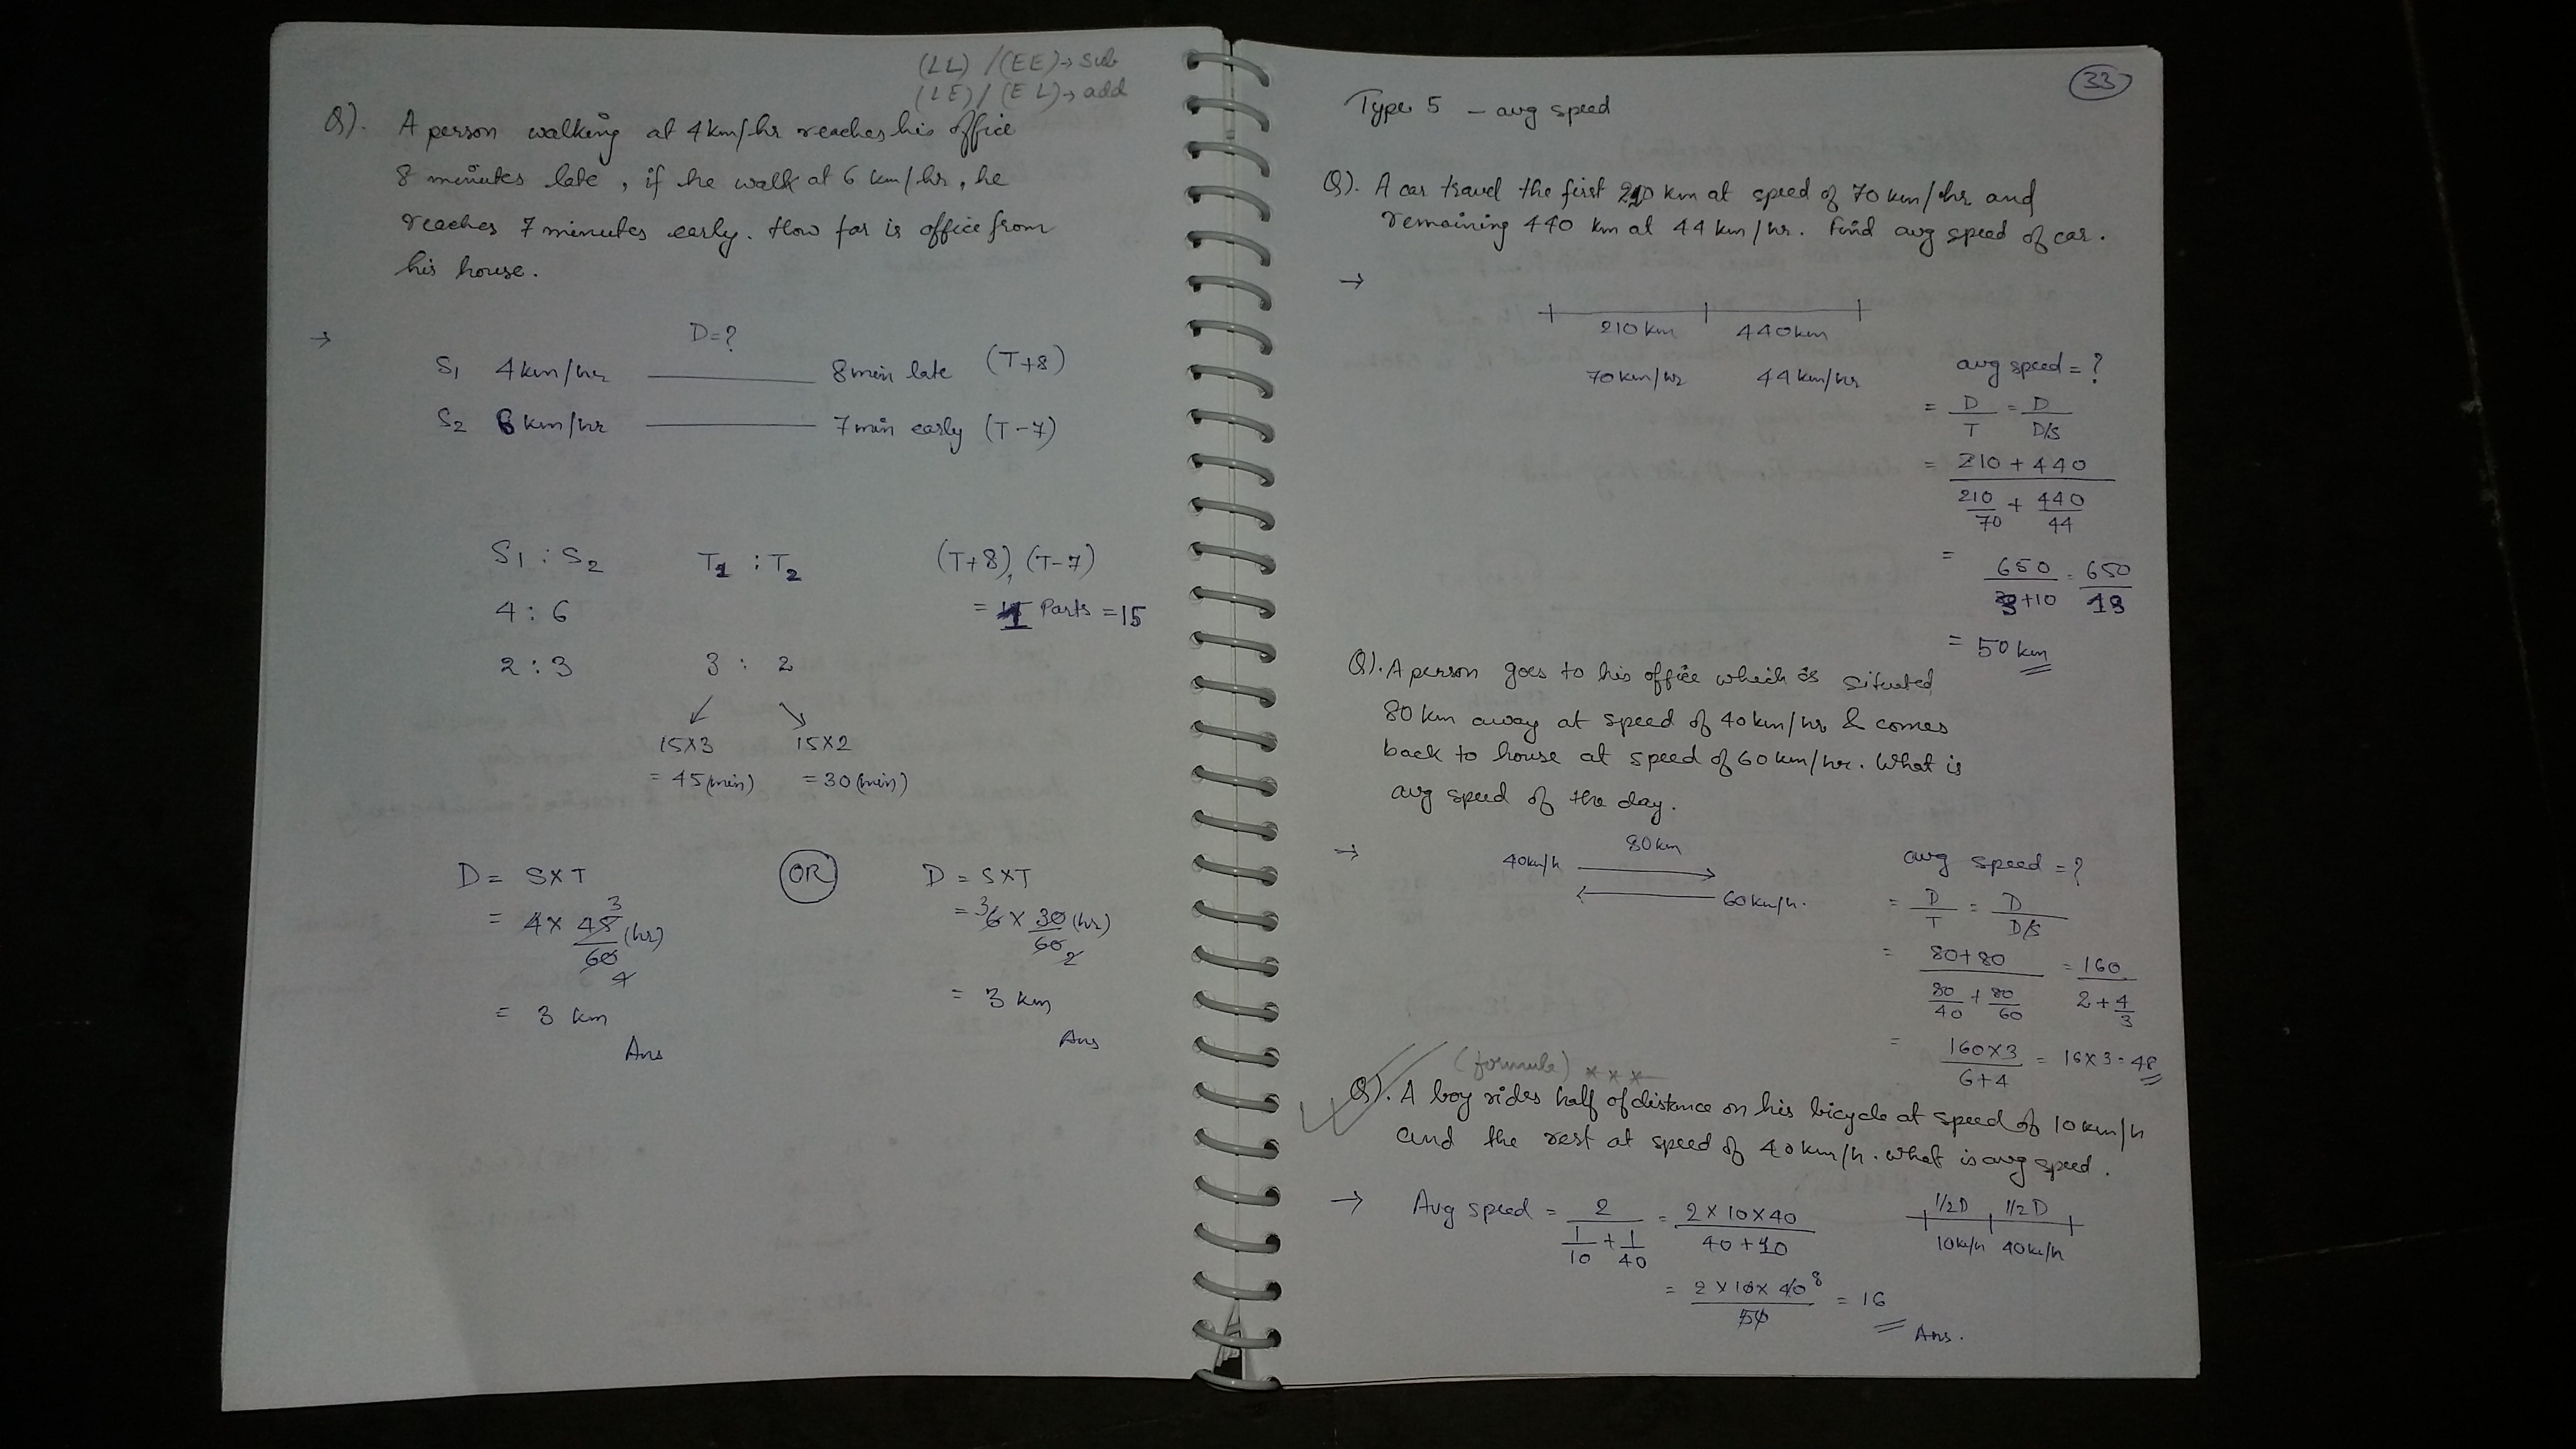 (LL) / (EE) → sub
(LE) / (EL) → add
Q). A person walking at 4km/hr reaches his office
8 minutes late, if he walk at 6 km/hr, he
reaches 7 minutes early. How far is office from
his house.
→ D=?
S1 4km/hr 8min late (T+8)
S2 6km/hr 7min early (T-7)
S1 : S2 T1 : T2 (T+8), (T-7)
4 : 6 = 1 Parts = 15
2 : 3 3 : 2
15×3 15×2
= 45(min) = 30(min)
D = S×T OR D = S×T
= 4 × 45/60 (hr) 3 4 = 6 × 30/60 (hr) 3 2
= 3 km = 3 km
Ans Ans
33
Type 5 - avg speed
Q). A car travel the first 210 km at speed of 70 km/hr and
remaining 440 km at 44 km/hr. Find avg speed of car.
→
210km 440km
70km/hr 44km/hr
avg speed = ?
= D/T = D/D/S
= 210 + 440
210/70 + 440/44
= 650/3+10 = 650/13
= 50 km
Q). A person goes to his office which is situated
80 km away at speed of 40 km/hr & comes
back to house at speed of 60 km/hr. What is
avg speed of the day.
→ 40km/h 80km
60km/h.
avg speed = ?
= D/T = D/D/S
= 80+80 = 160
80/40 + 80/60 2 + 4/3
= 160×3/6+4 = 16×3 = 48
(formula) ***
Q). A boy rides half of distance on his bicycle at speed of 10km/h
and the rest at speed of 40km/h. what is avg speed.
→ Avg speed = 2/1/10 + 1/40 = 2×10×40/40+10
1/2D 1/2D
10km/h 40km/h
= 2×10×40/50 8 = 16
Ans.